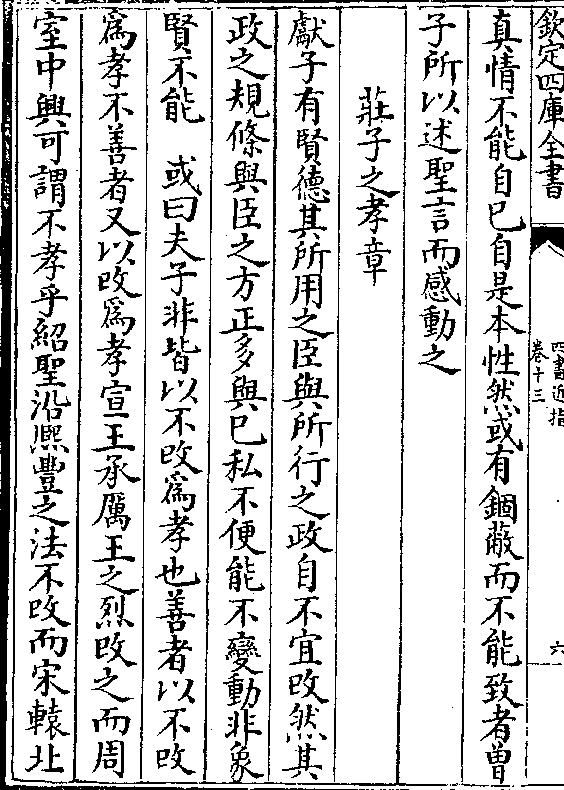 欽定四庫全書
四書近指
卷十三
六
真情不能自已自是本性然或有錮蔽而不能致者曽
子所以述聖言而感動之
莊子之孝章
獻子有賢德其所用之臣與所行之政自不宜改然其
政之規條與臣之方正多與已私不便能不變動非象
賢不能　或曰夫子非皆以不改為孝也善者以不改
為孝不善者又以改為孝宣王承厲王之烈改之而周
室中興可謂不孝乎紹聖沿熈豐之法不改而宋轅北